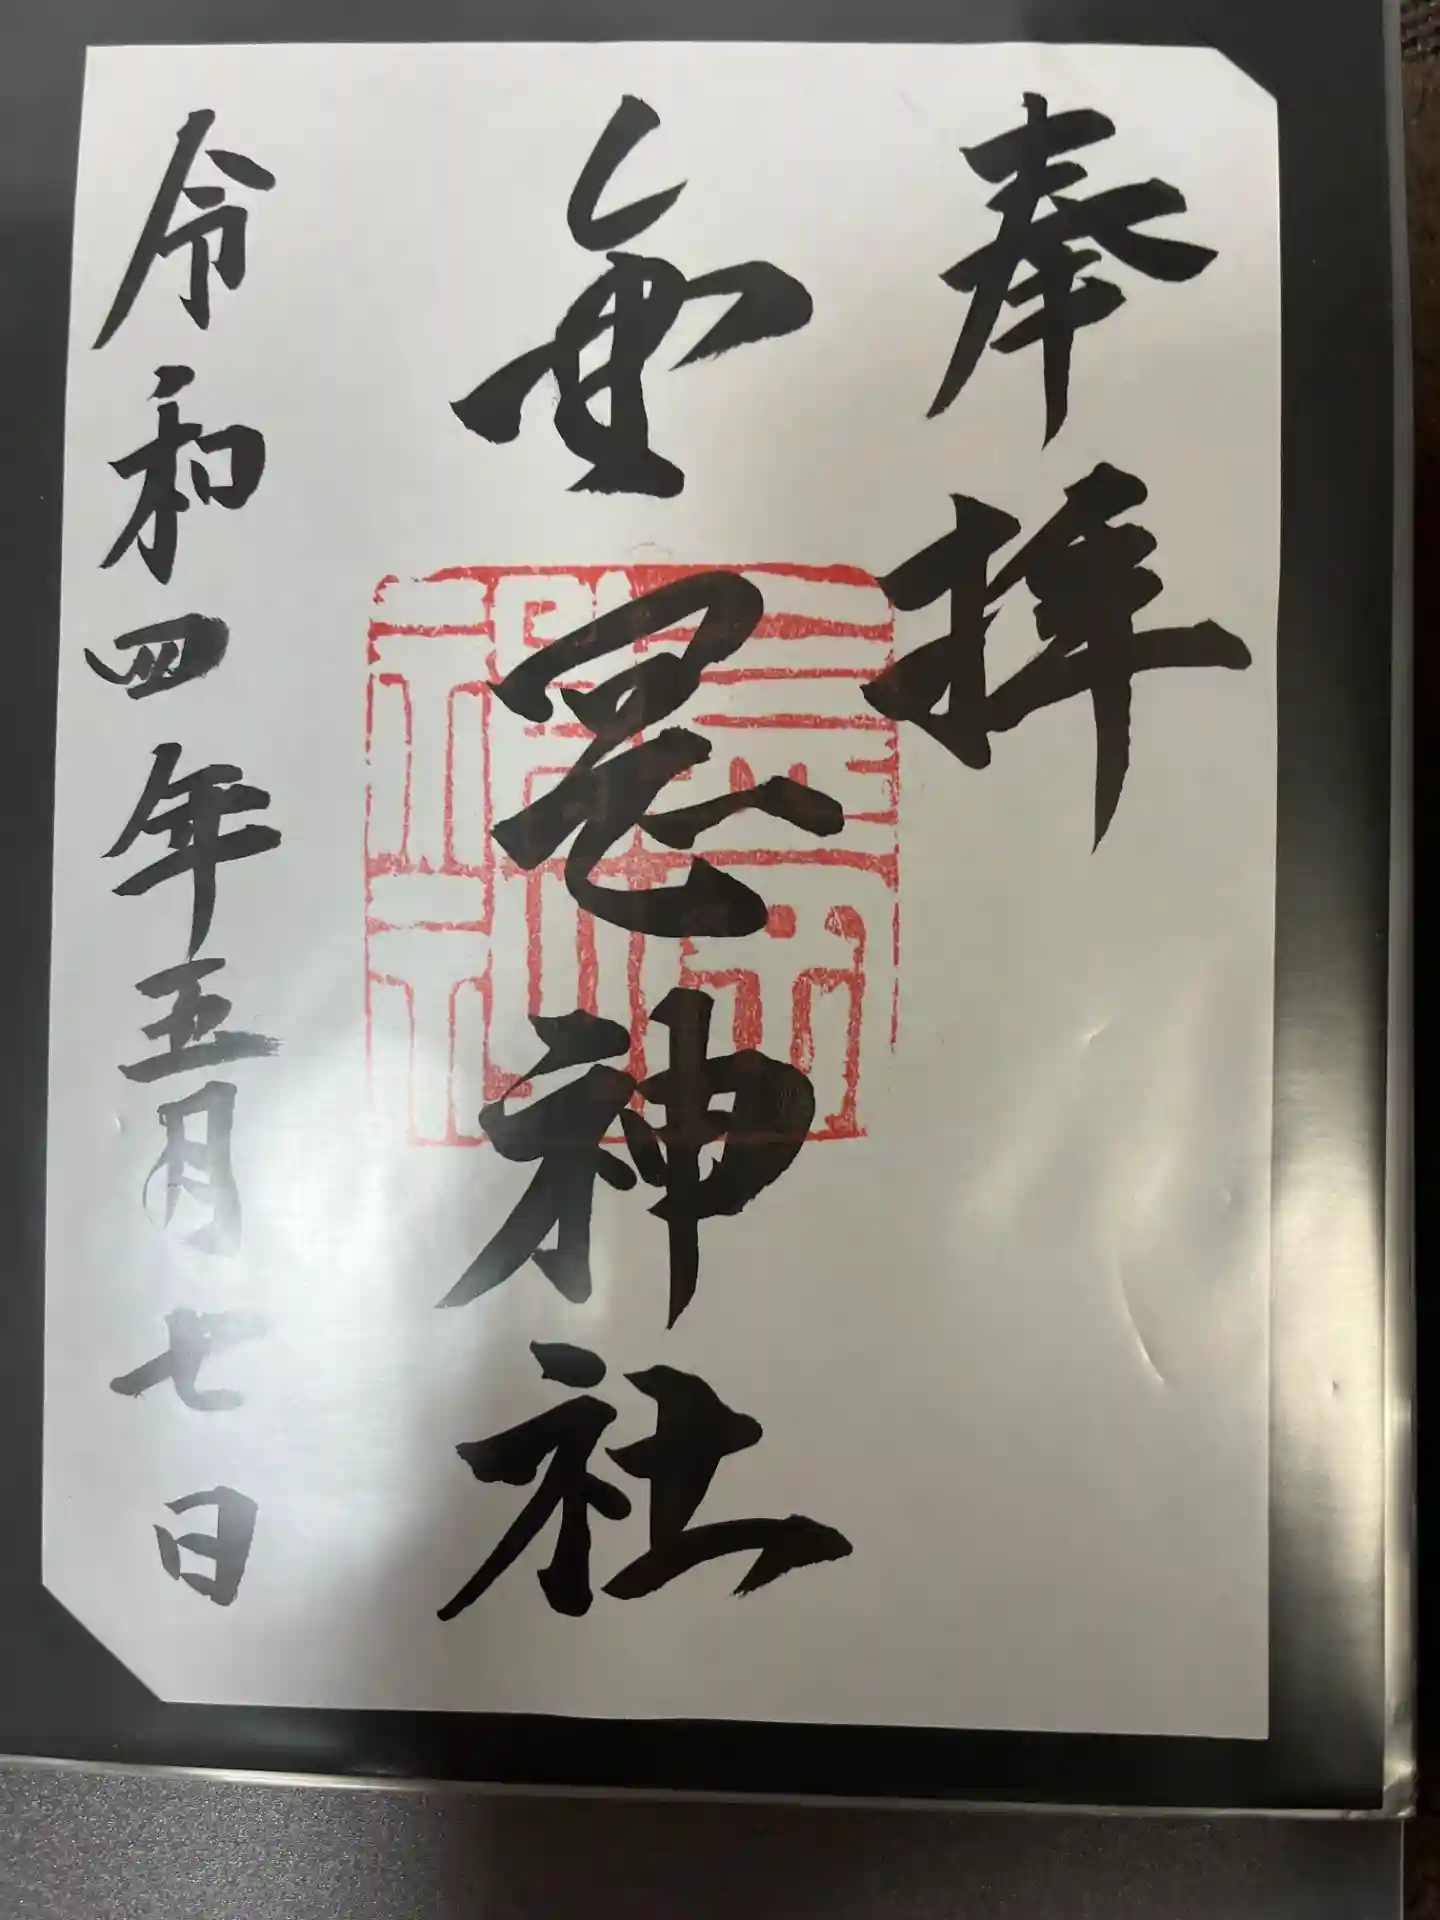 奉拝
神社
令和四年五月七日